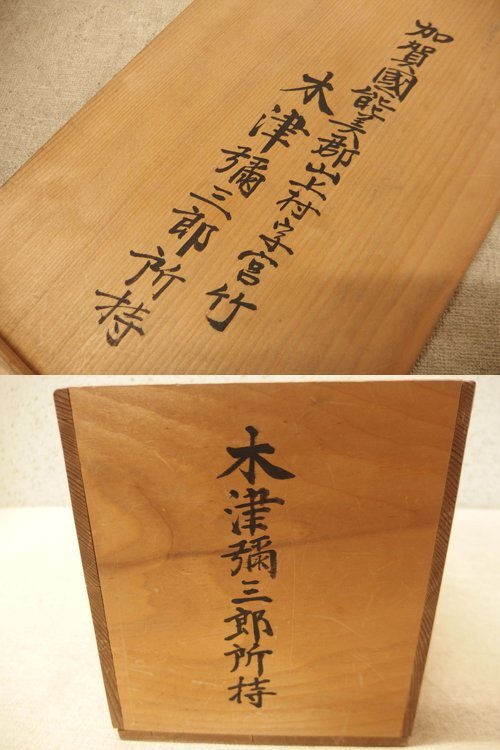 加賀國能美郡山上村字宮竹
木津彌三郎所持
木津彌三郎所持